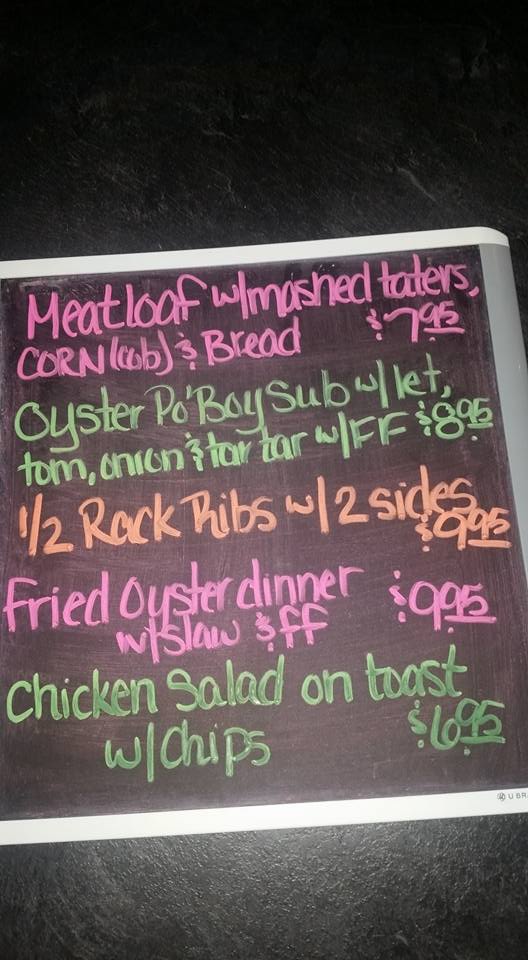 Meatloaf w/mashed taters,
CORN (cob) & Bread $7.95
Oyster Po'Boy Sub w/ let,
tom, onion & tar tar w/FF $8.95
1/2 Rack Ribs w/ 2 sides
$9.95
Fried Oyster dinner $9.95
w/slaw & ff
Chicken Salad on toast
w/Chips $6.95
U BR